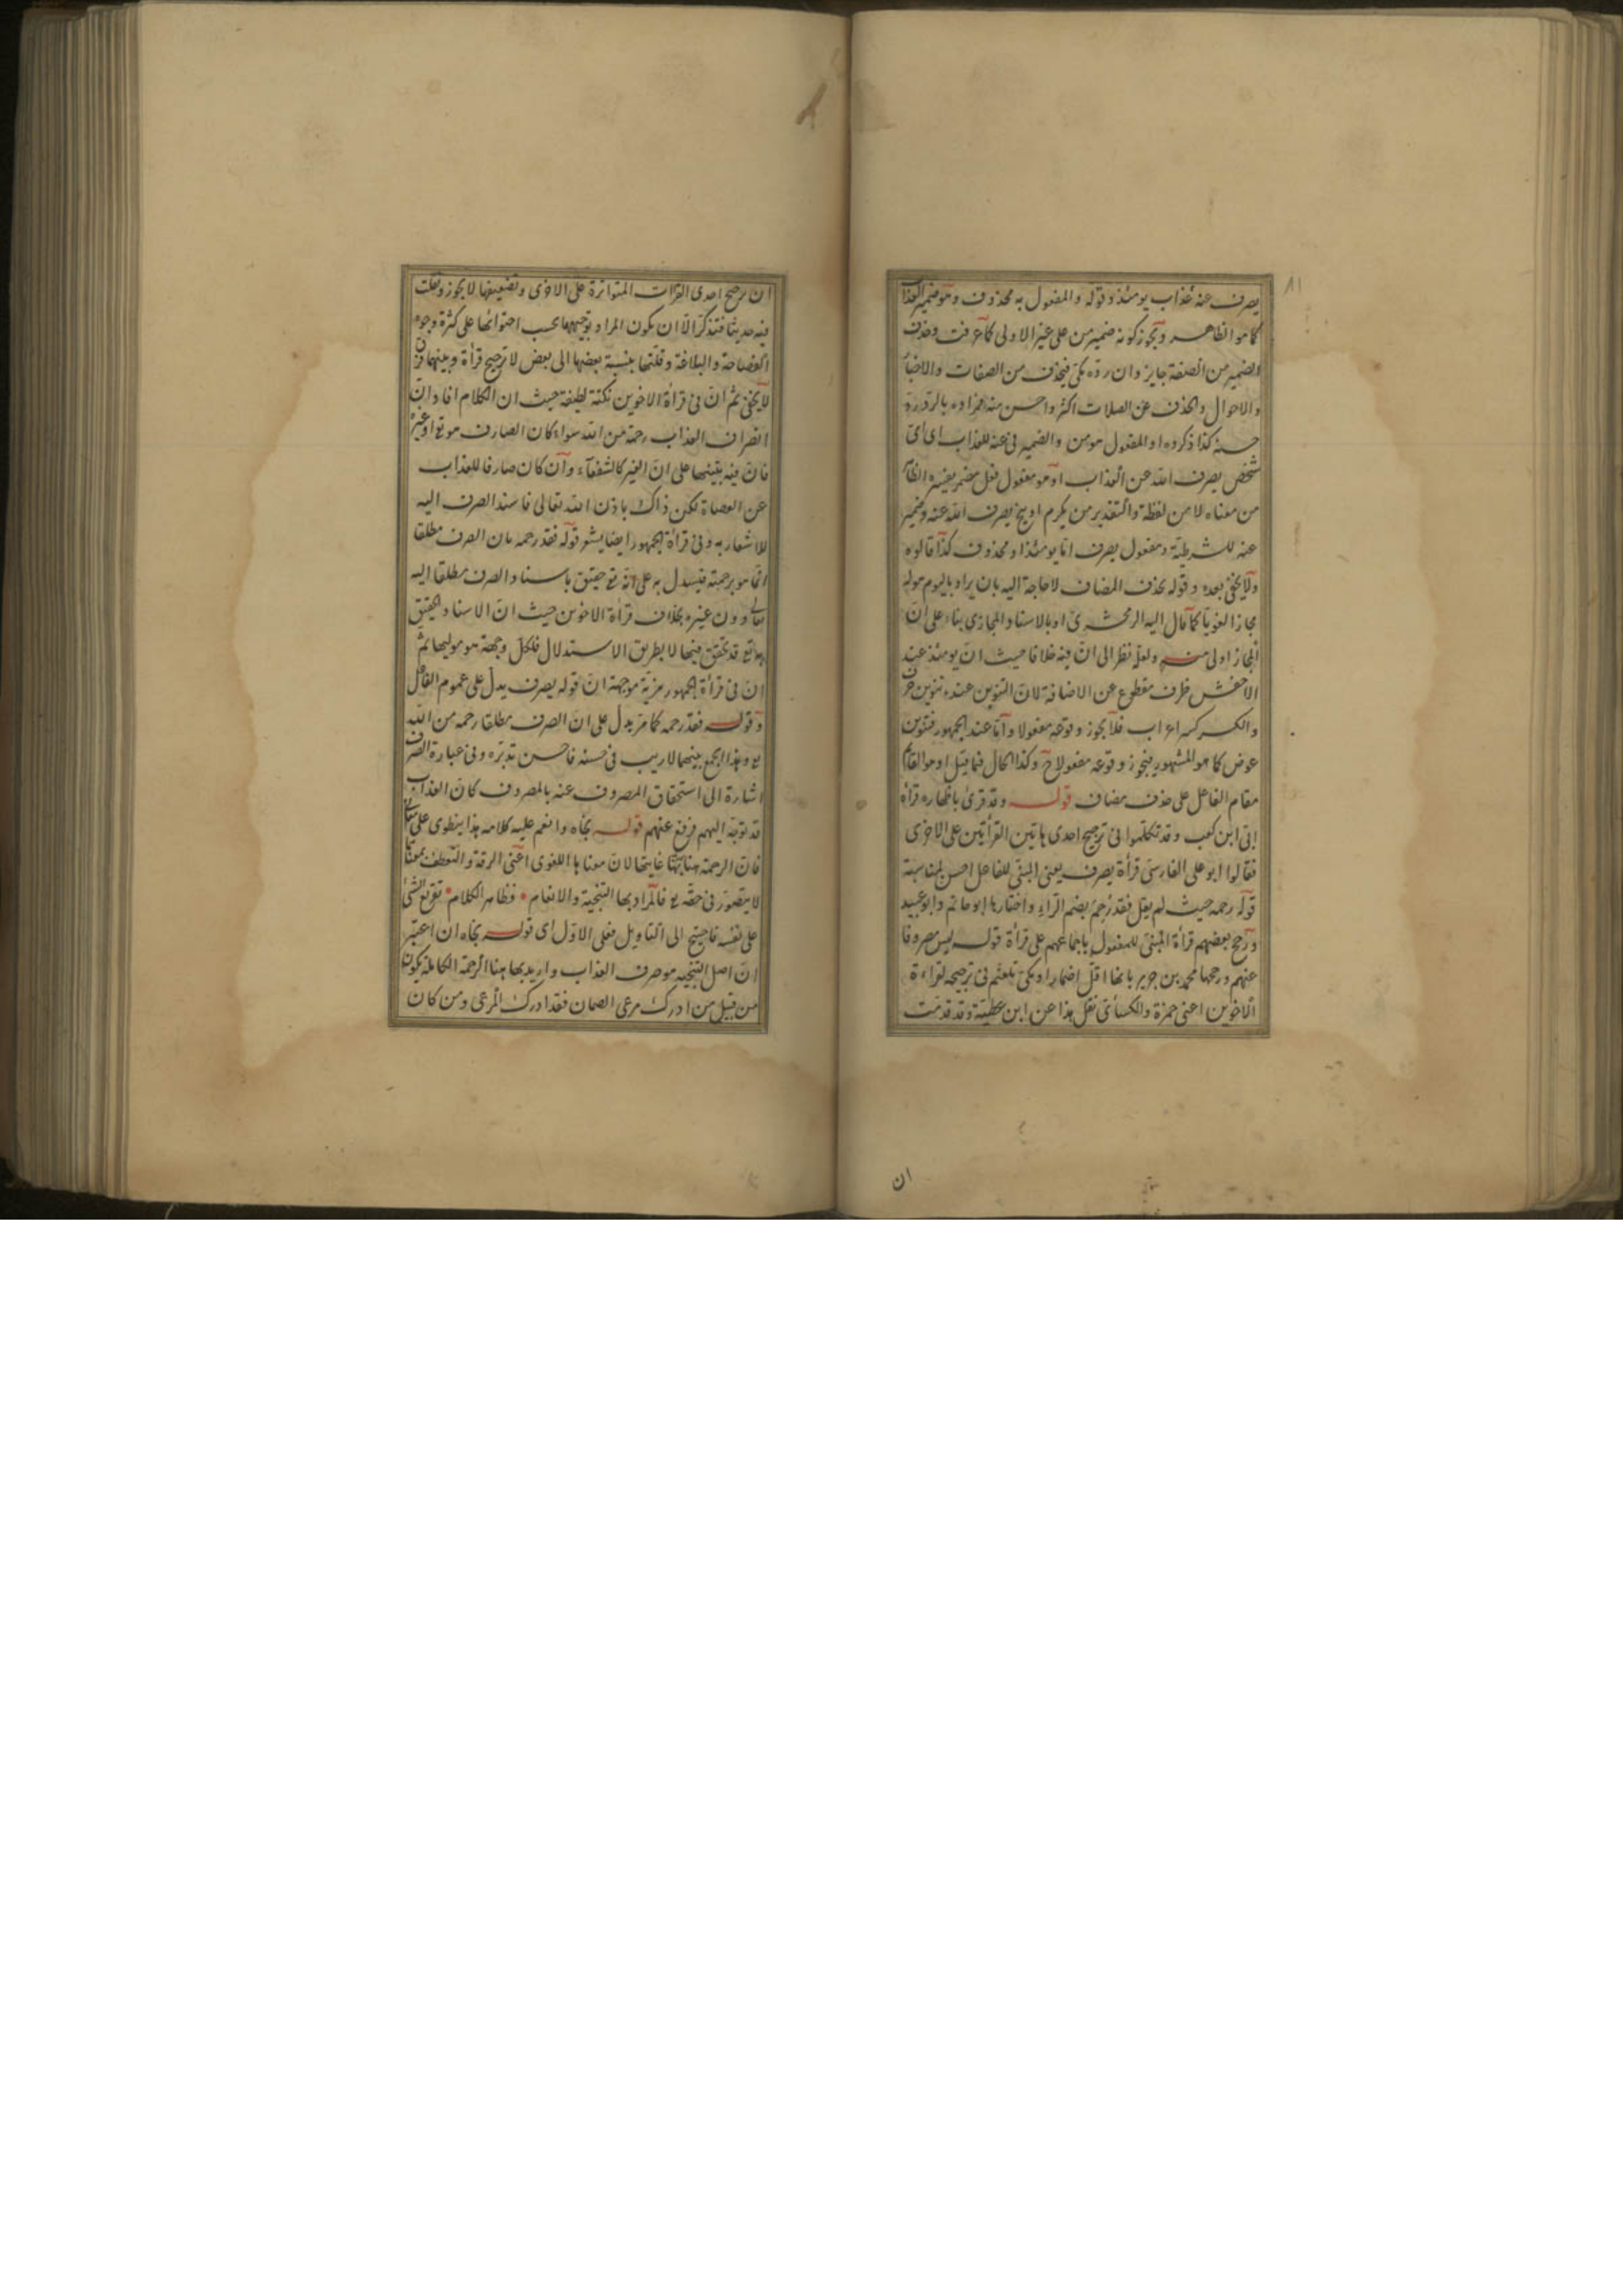 ٨١
يصرف عنه عذاب يومئذ وقوله والمفعول به محذوف وهو ضمير العذاب
كما هو الظاهر ويجوز كونه ضمير من على غير الاولى كما عرفت وحذف
الضمير من الصفة جايز وان رده مكى فيحذف من الصفات والاخبار
والاحوال والحذف عن الصلات اكثر واحسن منه
كذا ذكروه او المفعول هو من والضمير فى عنه للعذاب اى اى
شخص يصرف الله عن العذاب او هو مفعول فعل مضمر يفسره الظاهر
من معناه لا من لفظه والتقدير من يكرم او ينج يصرف الله عنه وضمير
عنه للشرطية ومفعول يصرف اما يومئذ او محذوف كذا قالوه
ولا يخفى بعده وقوله بحذف المضاف لا حاجة اليه بان يراد باليوم هوله
مجازا لغويا كما مال اليه الزمخشرى او بالاسناد المجازى بناء على ان
المجاز اولى منه ولعله نظر الى ان فيه خلافا حيث ان يومئذ عند
الاخفش ظرف مقطوع عن الاضافة لان التنوين عنده تنوين صرف
والكسر كسر اعراب فلا يجوز وقوعه مفعولا واما عند الجمهور فتنوين
عوض كما هو المشهور فيجوز وقوعه مفعولا ح وكذا الحال فيما قيل او هو القائم
مقام الفاعل على حذف مضاف قوله وقد قرئ باظهاره قرأه
ابى ابن كعب وقد تكلموا فى ترجيح احدى هاتين القرأتين على الاخرى
فقالوا ابو على الفارسى قرأة يصرف يعنى المبنى للفاعل احسن لمناسبة
قوله رحمه حيث لم يقل فقد رحم بضم الراء واختارها ابو حاتم وابو عبيد
ورجح بعضهم قرأة المبنى للمفعول باجماعهم على قرأة قوله ليس مصروفا
عنهم ورجحها محمد بن جرير بانها اقل اضمارا ومكى تلعثم فى ترجيحه لقراءة
الاخوين اعنى حمزة والكسائى نقل هذا عن ابن عطية وقد قدمت
ان
ان ترجيح احدى القرات المتواترة على الاخرى وتضعيفها لا يجوز ونقلت
فيه حديثا فتذكر الا ان يكون المراد توجيهها بحسب احتوائها على كثرة وجوه
الفصاحة والبلاغة وقلتها بنسبة بعضها الى بعض لا ترجيح قرأة وبينهما فرق
لا يخفى ثم ان فى قرأة الاخوين نكتة لطيفة حيث ان الكلام افاد ان
انصراف العذاب رحمة من الله سواء كان الصارف هو تع او غيره
فان فيه تنبيها على ان الغير كالشفعاء وان كان صارفا للعذاب
عن العصاة لكن ذاك باذن الله تعالى فاسند الصرف اليه
للاشعار به وفى قرأة الجمهور ايضا يشعر قوله فقد رحمه بان الصرف مطلقا
انما هو برحمته فيستدل به على انه تع حقيق باسناد الصرف مطلقا اليه
تعالى دون غيره بخلاف قرأة الاخوين حيث ان الاسناد الحقيقى
اليه تع قد تحقق فيها لا بطريق الاستدلال فلكل وجهة هو موليها ثم
ان فى قرأة الجمهور مزية موجهة ان قوله يصرف يدل على عموم الفاعل
وقوله فقد رحمه كما مر يدل على ان الصرف مطلقا رحمه من الله
تع وهذا الجمع بينهما لا ريب فى حسنه فاحسن تدبره وفى عبارة الصرف
اشارة الى استحقاق المصروف عنه بالمصروف كان العذاب
قد توجه اليهم فرفع عنهم قوله نجاه وانعم عليه كلامه هذا ينطوى على
فان الرحمة هنا غايتها لان معناها اللغوى اعنى الرقة والتعطف
لا يتصور فى حقه تع فالمراد بها التنجية والانعام فظاهر الكلام تفريع الشئ
على نفسه فاحتيج الى التاويل فعلى الاول اى قوله نجاه ان اعتبر
ان اصل التنجيه هو صرف العذاب واريد بها هنا الرحمة الكاملة يكون
من قبيل من ادرك مرعى الصمان فقد ادرك المرعى ومن كان